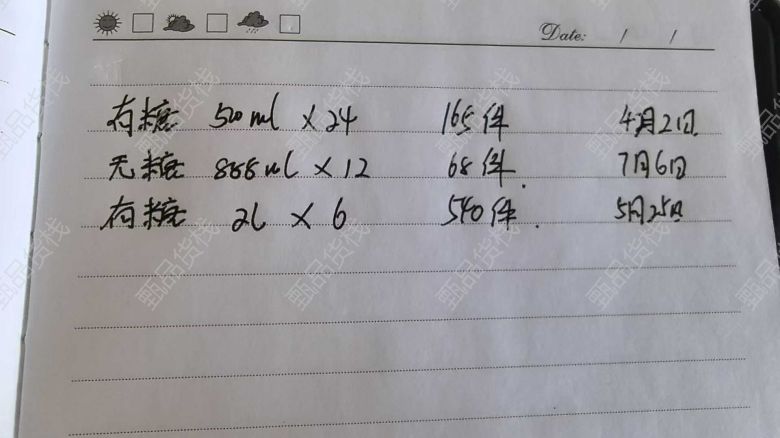 Date: / /
有糖 500ml × 24 165件 4月2日
无糖 888ml × 12 68件. 7月6日
有糖 2L × 6 540件. 5月25日
甄品货栈